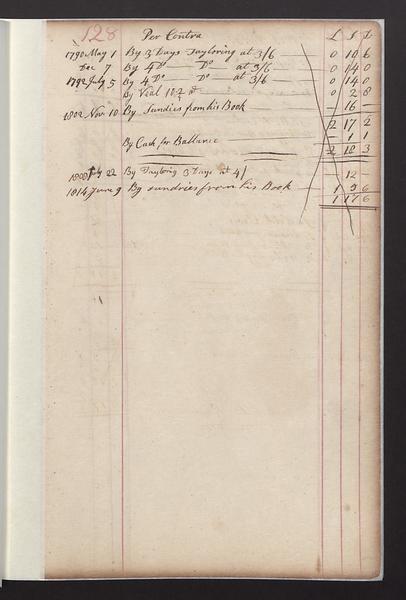 128 Per Contra £ S D
1790 May 1 By 3 Days Tayloring at 3/6 0 10 6
Dec 7 By 4 Do Do at 3/6 0 14 0
1792 July 5 By 4 Do Do at 3/6 0 14 0
By Veal 10 0 2 8
1802 Nov 10 By Sundies from his Book 16
2 17 2
By Cash for Ballance 1 1
2 18 3
22 By Tayloring 3 Days at 4/ 12
1814 June 9 By sundries from his Book 1 5 6
1 17 6